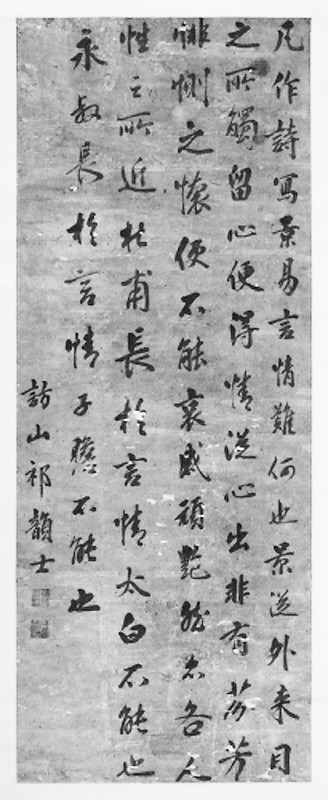 凡作詩寫景易言情難何也景從外来目
之所觸留心便得情從心出非有芬芳
悱惻之懷便不能哀感頑艷然亦各人
性之所近杜甫長於言情太白不能也
永叔長於言情子瞻不能也
訪山祁韻士